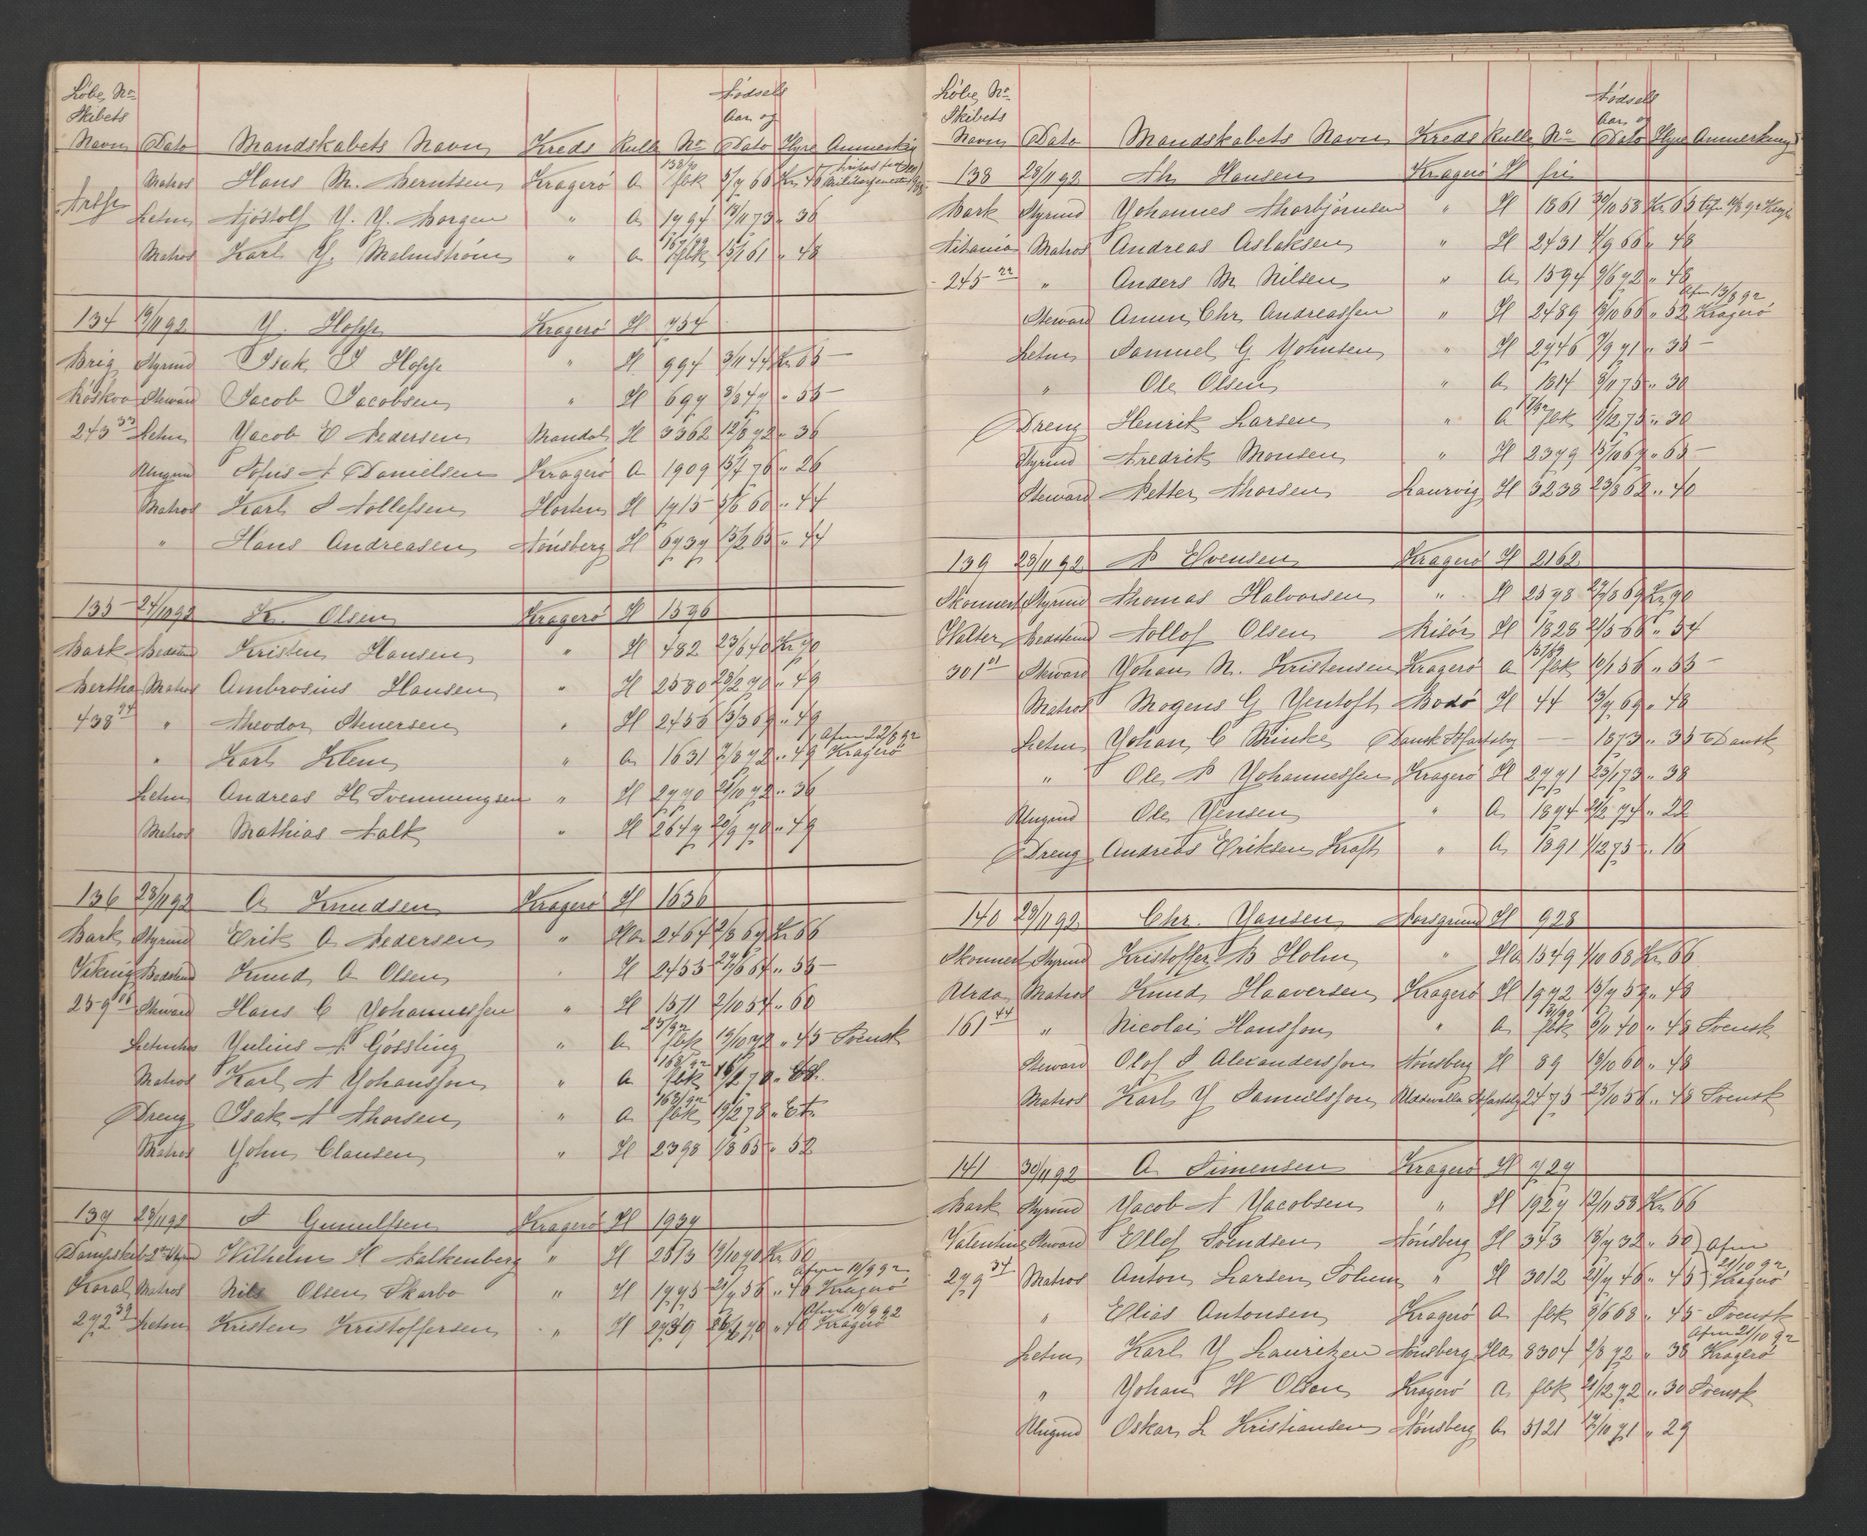 Løbe No
Skibets
Navn Dato Mandskabets Navn Kreds Rulle No Fødsels Aar og Dato Hyre Anmerkning
Matros Hans M. Berntsen Kragerø A 138/90 fbk 5/7 66 Kr 46
Letm Kjøstolf J. J. Borgen " A 1794 13/11 73 " 36
Matros Karl J. Malmstrøm " A fbk 15/1 61 " 48
134 19/11 92 J. Hopp Kragerø H 754
Brig Styrmd Isak I Hopp " H 994 3/11 44 Kr 65
Røskva Steward Jacob Jacobsen " H 697 3/3 47 " 55
243 33 Letm Jacob E Pedersen Mandal H 3362 12/8 72 " 36
Ungmd Sofus A Danielsen Kragerø A 1909 15/7 76 " 26
Matros Karl I Tollefsen Horten H 1715 5/6 60 " 44
" Hans Andreasen Tønsberg H 6737 15/2 65 " 44
135 24/10 92 K. Olsen Kragerø H 1596
Bark Bedstmd Kristen Hansen " H 482 23/6 40 Kr 70
Bertha Matros Ambrosius Hansen " H 2530 28/2 70 " 49
438 74 " Theodor Stenersen " H 2456 15/3 69 " 49
" Karl Klem " A 1631 2/8 72 " 49 Afm 22/8 92 Kragerø
Letm Andreas H Svenningsen " H 2770 21/10 72 " 36
Matros Mathias Falk " H 2647 20/9 70 " 49
136 23/11 92 A Knudsen Kragerø H 1636
Bark Styrmd Erik A Pedersen " HA 2464 2/8 67 Kr 66
Viking Bedstmd Knud A Olsen H 2455 64 " 55
259 06 Steward Hans C Johannessen " H 1511 2/10 54 " 60
Letmtrs Julius A Gøssling " A 23/92 fbk 19/10 72 " 45 Svensk
Matros Karl A Johansson " A 168/92 fbk 70 "
Dreng Isak A Thorsen " A 163/92 fbk 19/2 78 "
Matros John Clausen " H 2398 1/8 65 " 52
137 23/11 92 A Gunulfsen Kragerø H 1937
Dampskib 2den Styrmd Wilhelm H Falkenberg " H 2813 9/10 70 Kr 60
Koral Matros Nils Olsen Skarbo " H 1775 21/7 56 " 46 Afm 10/9 92 Kragerø
272 39 Letm Kristen Kristoffersen " H 2739 26/6 70 " 40 Afm 10/9 92 Kragerø
Løbe No
Skibets
Navn Dato Mandskabets Navn Kreds Rulle No Fødsels Aar og Dato Hyre Anmerkning
138 23/11 92 Th Hansen Kragerø H fri
Bark Styrmd Johannes Thorbjørnsen " H 1361 30/10 53 Kr 65
Titania Matros Andreas Aslaksen " H 2431 4/9 66 " 48
245 22 " Anders M Nilsen " A 1594 9/6 72 " 48
Steward Amun Chr Andreassen " H 2489 13/10 66 " 52 Afm 13/8 92 Kragerø
Letm Samuel G Johnsen " H 2746 7/9 71 " 35
" Ole Olsen " A 1814 8/11 75 " 30
Dreng Henrik Larsen " A fbk 1/12 75 " 30
Styrmd Fredrik Monsen " H 2379 15/10 67 " 65
Steward Petter Thorsen Laurvig H 3233 23/8 62 " 40
139 23/11 92 P Evensen Kragerø H 2162
Skonnert Styrmd Thomas Halvorsen " H 2578 27/8 69 Kr 70
Walter Bedstmd Tollof Olsen Risør H 1828 21/5 66 " 54
301 01 Steward Johan N. Kristensen Kragerø A fbk 10/1 56 " 55
Matros Mogens G Jentoft Bodø H 44 13/7 69 " 48
Letm Johan C Brinke Dansk Afartsbog — 1873 " 35 Dansk
" Ole P Johannessen Kragerø H 2771 23/1 73 " 38
Ungmd Ole Jensen " A 1874 21/2 74 " 22
Dreng Andreas Eriksen Kraft " A 1891 1/12 75 " 16
140 23/11 92 Chr. Jansen Porsgrund H 928
Skonnert Styrmd Kristoffer B Holm " HA 1549 1/10 68 Kr 66
Urda Matros Knud Haaversen Kragerø H 1972 15/7 59 " 48
161 44 " Nicolai Hansson " A fbk 5/11 40 " 48 Svensk
Steward Olof I Alexandersson Tønsberg H 89 13/10 60 " 48
Matros Karl J Samuelsson Uddevalla Afartsbg 2475 25/10 56 " 48 Svensk
141 30/11 92 A Simensen Kragerø H 727
Bark Styrmd Jacob A Jacobsen " H 1927 12/11 53 Kr 66
Valentine Steward Ellef Svendsen Tønsberg H 343 13/7 32 " 50 } Afm
279 34 Matros Anton Larsen Solum " H 3012 21/7 46 " 45 } 21/10 92 Kragerø
" Elias Antonsen Kragerø A fbk 8/6 68 " 45 Svensk
Letm Karl J Lauritzen Tønsberg HA 8304 2/8 72 " 38 Afm 21/10 92 Kragerø
" Johan W Olson Kragerø A fbk 21/12 72 " 30 Svensk
Ungmd Oskar L Kristiansen Tønsberg A 5121 19/10 71 " 29